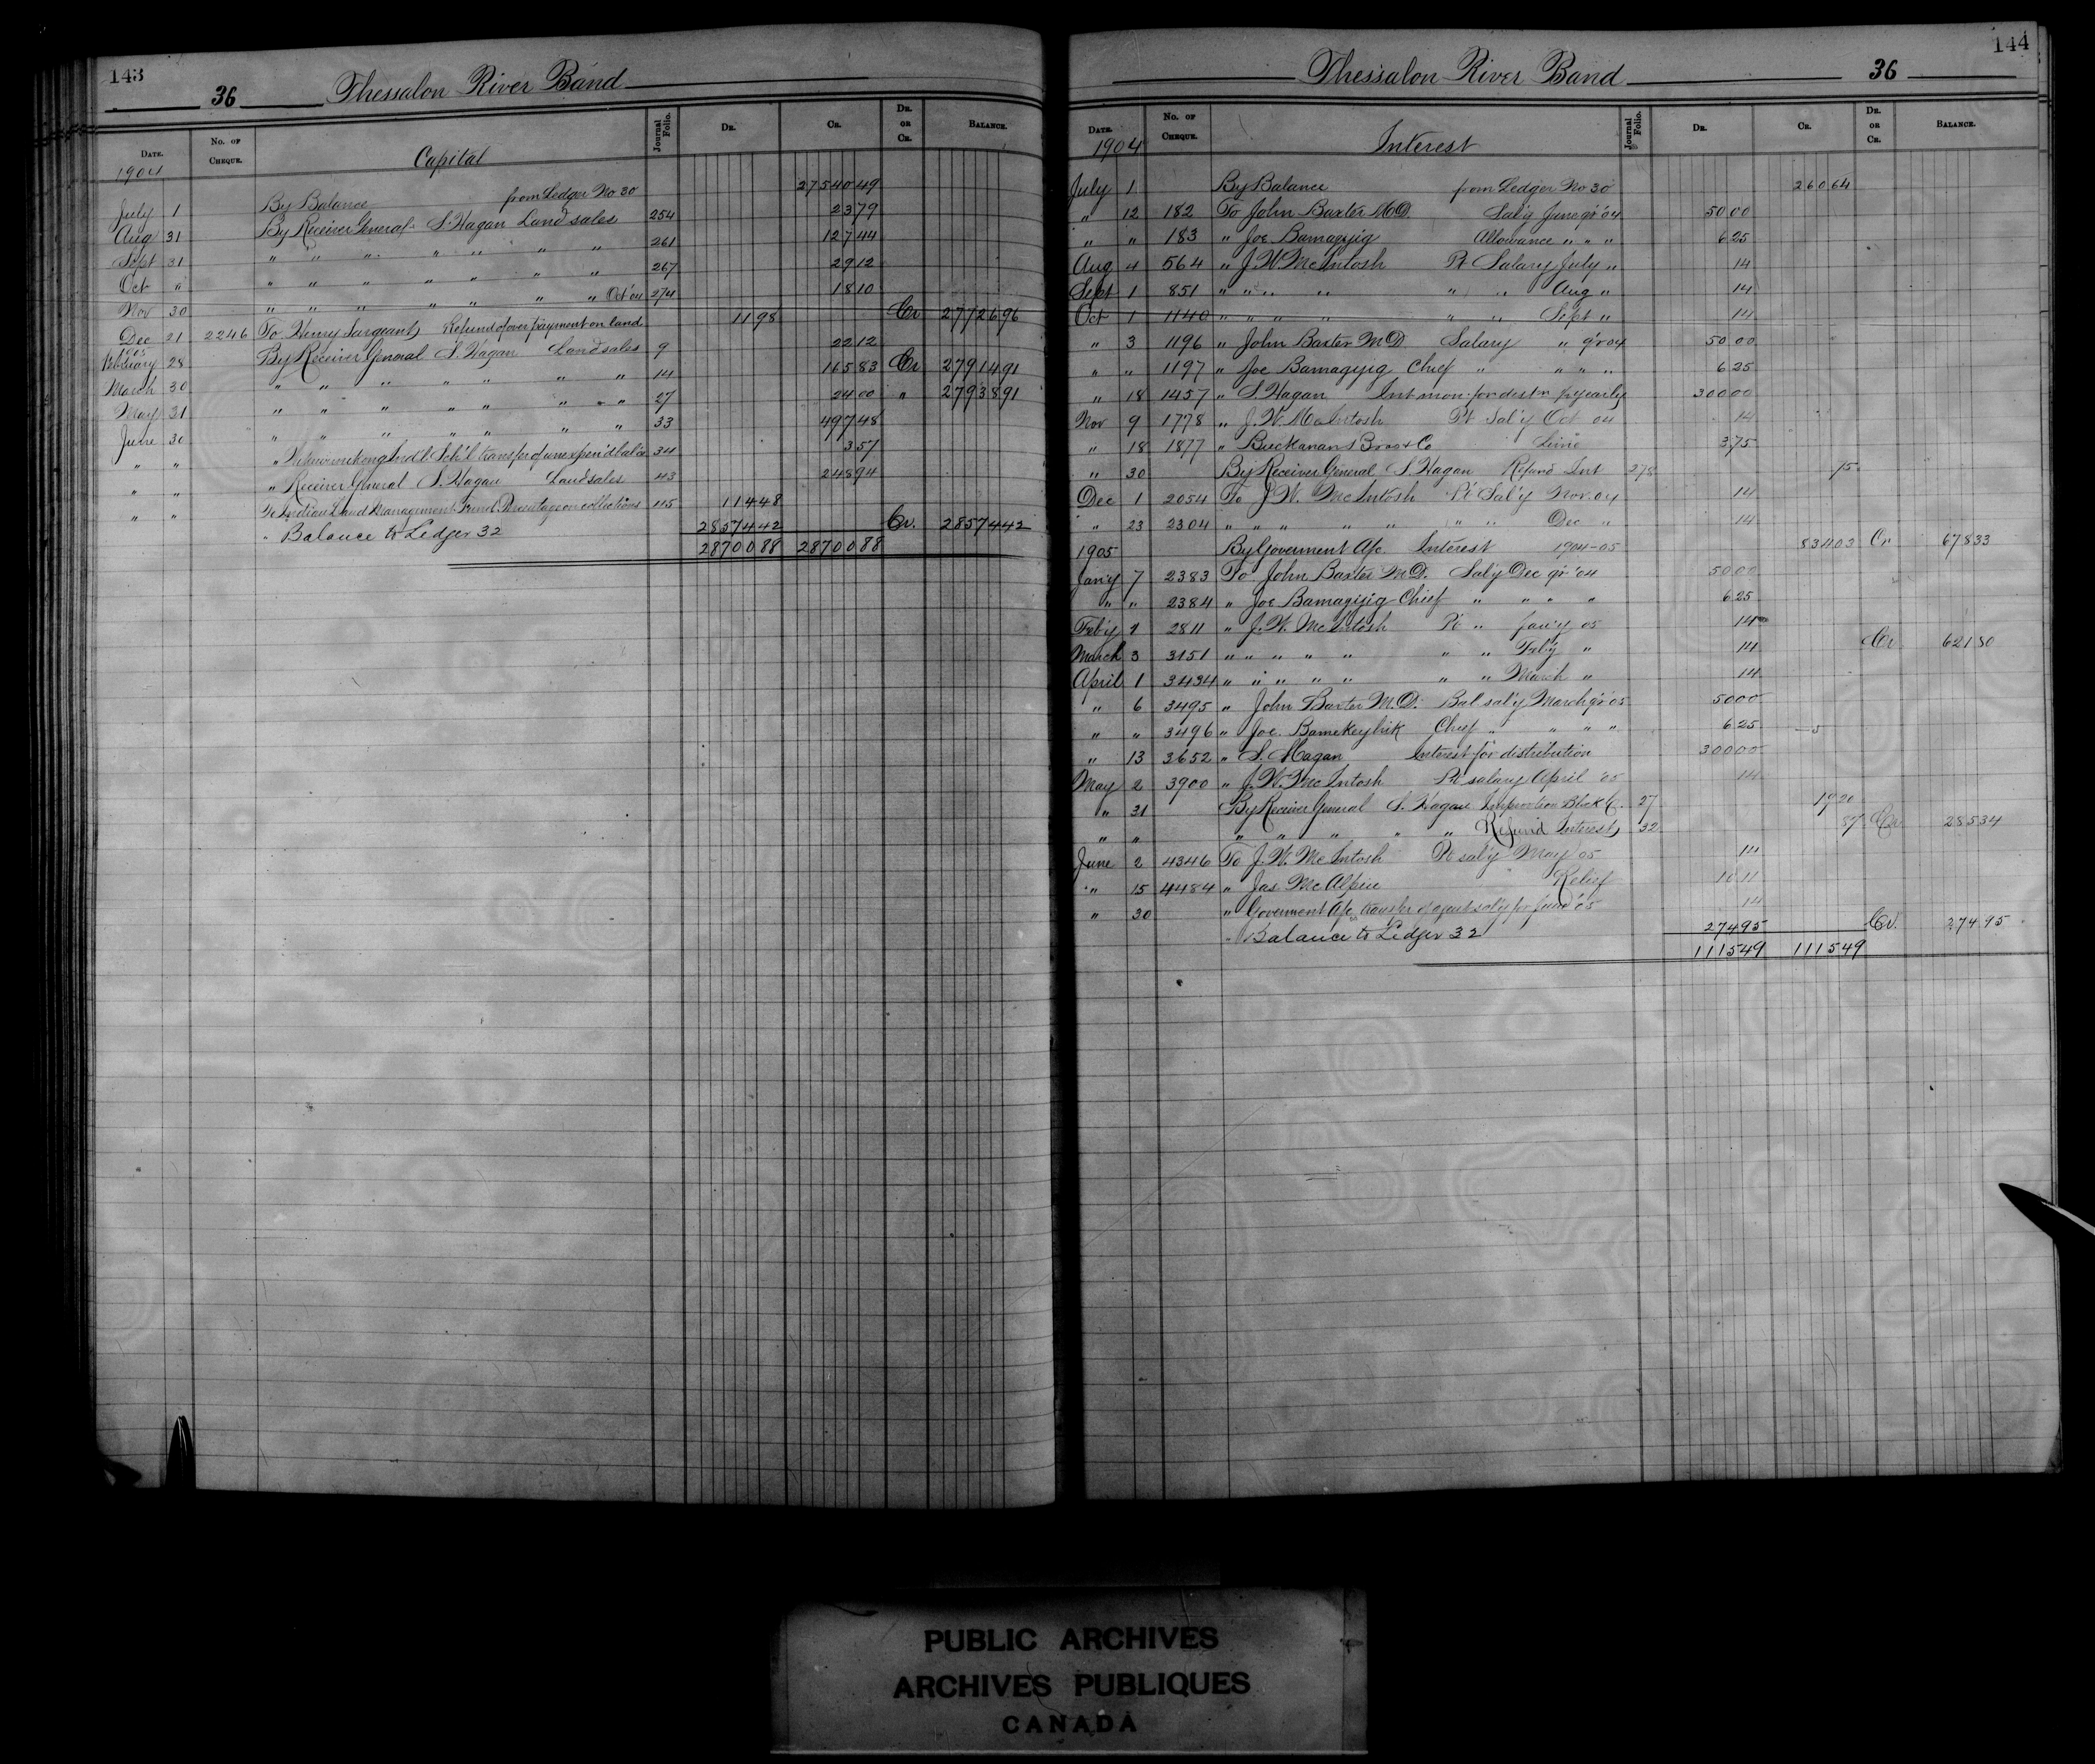 143
36 Thessalon River Band
Date. No. of Cheque. Capital Journal Folio. Dr. Cr. Dr. or Cr. Balance.
1904
July 1 By Balance from Ledger No 30 27540 49
Aug 31 By Receiver General S. Hagan Land sales 254 23 79
Sept 31 " " " " " " " 261 127 44
Oct " " " " " " " " 267 29 12
Nov 30 " " " " " " " Oct '04 274 18 10
Dec 21 2246 To Henry Sargeant Refund of over payment on land 11 98 Cr 27726 96
1905
February 28 By Receiver General S. Hagan Land sales 9 22 12
March 30 " " " " " " " 14 165 83 Cr 27914 91
May 31 " " " " " " " 27 24 00 " 27938 91
June 30 " " " " " " " 33 497 48
" " " Indl. Sch'l transfer of unexpend bal'ce 34 3 57
" " " Receiver General S. Hagan Land sales 43 248 94
" " To Indian Land Management Fund. Percentage on collections 45 114 48
" Balance to Ledger 32 28574 42 Cr. 28574 42
28700 88 28700 88
144
Thessalon River Band 36
Date. No. of Cheque. Interest Journal Folio. Dr. Cr. Dr. or Cr. Balance.
1904
July 1 By Balance from Ledger No 30 260 64
" 12 182 To John Baxter M.D. Sal'y June qr '04 50 00
" " 183 " Joe Bamagijig Allowance " " " 6 25
Aug 4 564 " J. W. McIntosh Pt Salary July " 14
Sept 1 851 " " " " " " Aug " 14
Oct 1 1140 " " " " " " Sept " 14
" 3 1196 " John Baxter M.D Salary " qr 04 50 00
" " 1197 " Joe Bamagijig Chief " " " " 6 25
" 18 1457 " S. Hagan Int mon. for dist'n 300 00
Nov 9 1778 " J. W. McIntosh Pt Sal'y Oct 04 14
" 18 1877 " Buckanan Bros & Co 3 75
" 30 By Receiver General S. Hagan Refund Int 278 75
Dec 1 2054 To J. W. McIntosh Pt Sal'y Nov. 04 14
" 23 2304 " " " " " " " Dec " 14
1905 By Goverment A/c. Interest 1904-05 834 03 Cr 678 33
Jan'y 7 2383 To John Baxter M.D. Sal'y Dec qr '04 50 00
" " 2384 " Joe Bamagijig Chief " " " " 6 25
Feb'y 1 2811 " J. W. McIntosh Pt " Jan'y 05 14
March 3 3151 " " " " " " " Feb'y " 14 Cr 621 80
April 1 3434 " " " " " " " March " 14
" 6 3495 " John Baxter M.D. Bal sal'y March qr '05 50 00
" " 3496 " Joe. Bamekeyhik Chief " " " " 6 25
" 13 3652 " S. Hagan Interest for distribution 300 00
May 2 3900 " J. W. McIntosh Pt salary April '05 14
" 31 By Receiver General S. Hagan 27 19 20
" " " " " " " Refund Interest 32 87 Cr 285 34
June 2 4346 To J. W. McIntosh Pt sal'y May 05 14
" 15 4484 " Jas McAlpine Relief
" 30 " Goverment A/c transfer of agent sal'y for June '05 14
" Balance to Ledger 32 274 95 Cr. 274 95
1115 49 1115 49
PUBLIC ARCHIVES
ARCHIVES PUBLIQUES
CANADA